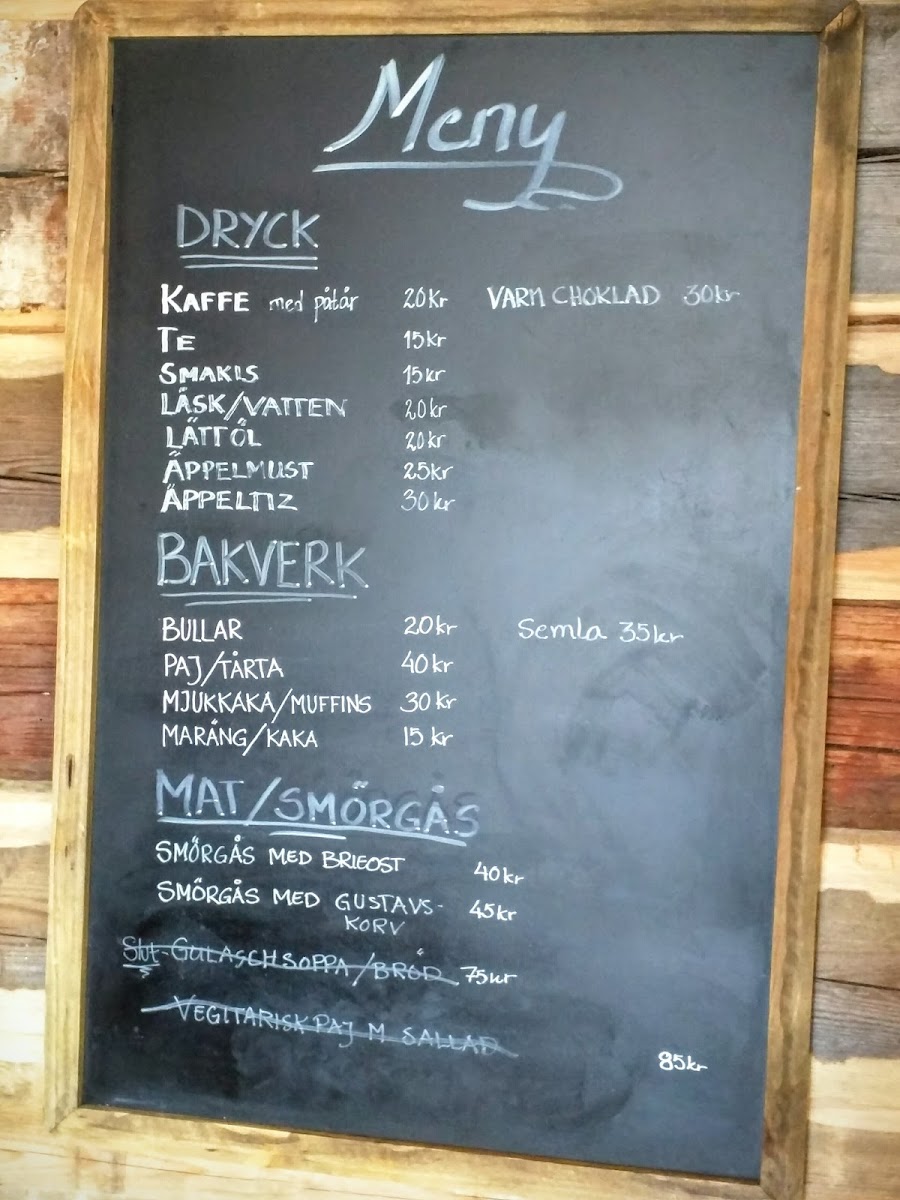 Meny
DRYCK
KAFFE med påtår 20kr VARM CHOKLAD 30kr
TE 15kr
SMAKIS 15kr
LÄSK/VATTEN 20kr
LÄTTÖL 20kr
ÄPPELMUST 25kr
ÄPPELTIZ 30kr
BAKVERK
BULLAR 20kr Semla 35kr
PAJ/TÅRTA 40kr
MJUKKAKA/MUFFINS 30kr
MARÄNG/KAKA 15kr
MAT/SMÖRGÅS
SMÖRGÅS MED BRIEOST 40kr
SMÖRGÅS MED GUSTAVS- 45kr
KORV
Slut-GULASCHSOPPA/BRÖD 75kr
VEGITARISK PAJ M SALLAD
85kr